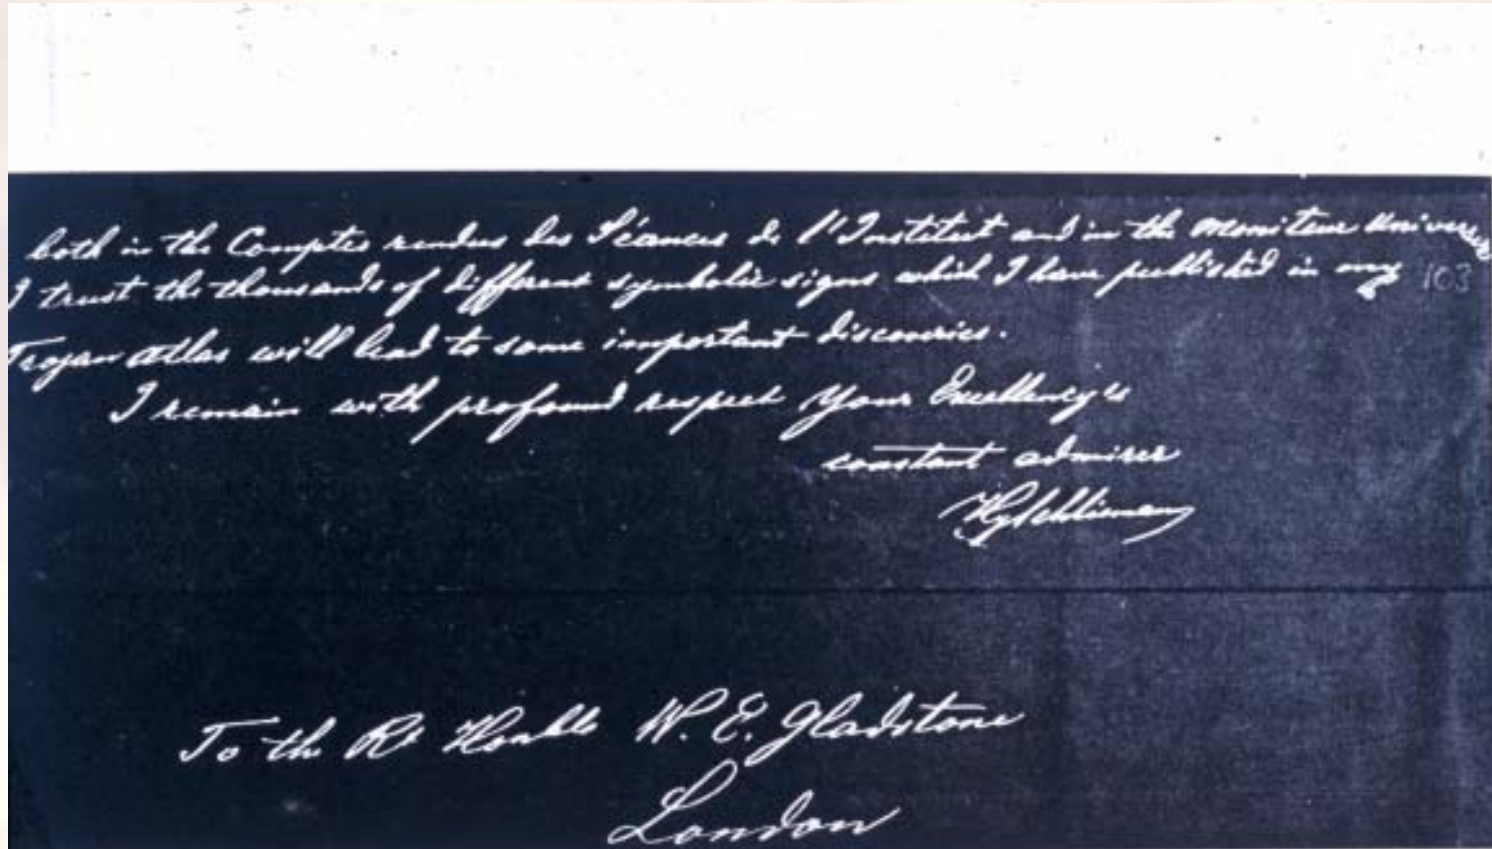 both in the Comptes rendus des Séances de l'Institut and in the Moniteur Universel
I trust the thousands of different symbolic signs which I have published in my 103
Trojan atlas will lead to some important discoveries.
I remain with profound respect Your Excellency's
constant admirer
Hy Schliemann
To the Rt Honble W. E. Gladstone
London